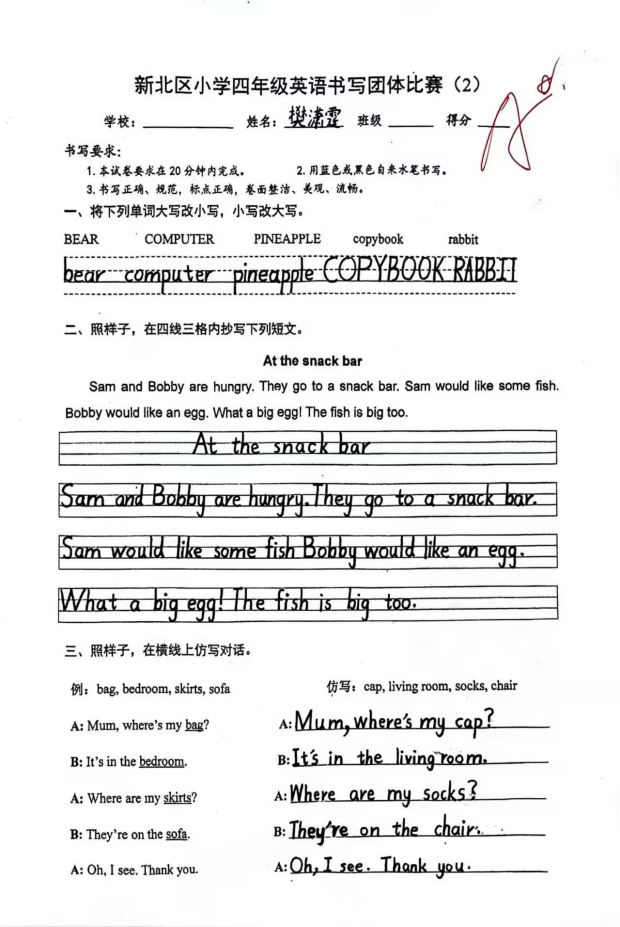 新北区小学四年级英语书写团体比赛（2）
学校： 姓名：樊潇霆 班级 得分
书写要求：
1. 本试卷要求在20分钟内完成。 2. 用蓝色或黑色自来水笔书写。
3. 书写正确、规范，标点正确，卷面整洁、美观、流畅。
一、将下列单词大写改小写，小写改大写。
BEAR COMPUTER PINEAPPLE copybook rabbit
bear computer pineapple COPYBOOK RABBIT
二、照样子，在四线三格内抄写下列短文。
At the snack bar
Sam and Bobby are hungry. They go to a snack bar. Sam would like some fish.
Bobby would like an egg. What a big egg! The fish is big too.
At the snack bar
Sam and Bobby are hungry. They go to a snack bar.
Sam would like some fish Bobby would like an egg.
What a big egg! The fish is big too.
三、照样子，在横线上仿写对话。
例：bag, bedroom, skirts, sofa 仿写：cap, living room, socks, chair
A: Mum, where's my bag? A: Mum, where's my cap?
B: It's in the bedroom. B: It's in the living room.
A: Where are my skirts? A: Where are my socks?
B: They're on the sofa. B: They're on the chair.
A: Oh, I see. Thank you. A: Oh, I see. Thank you.